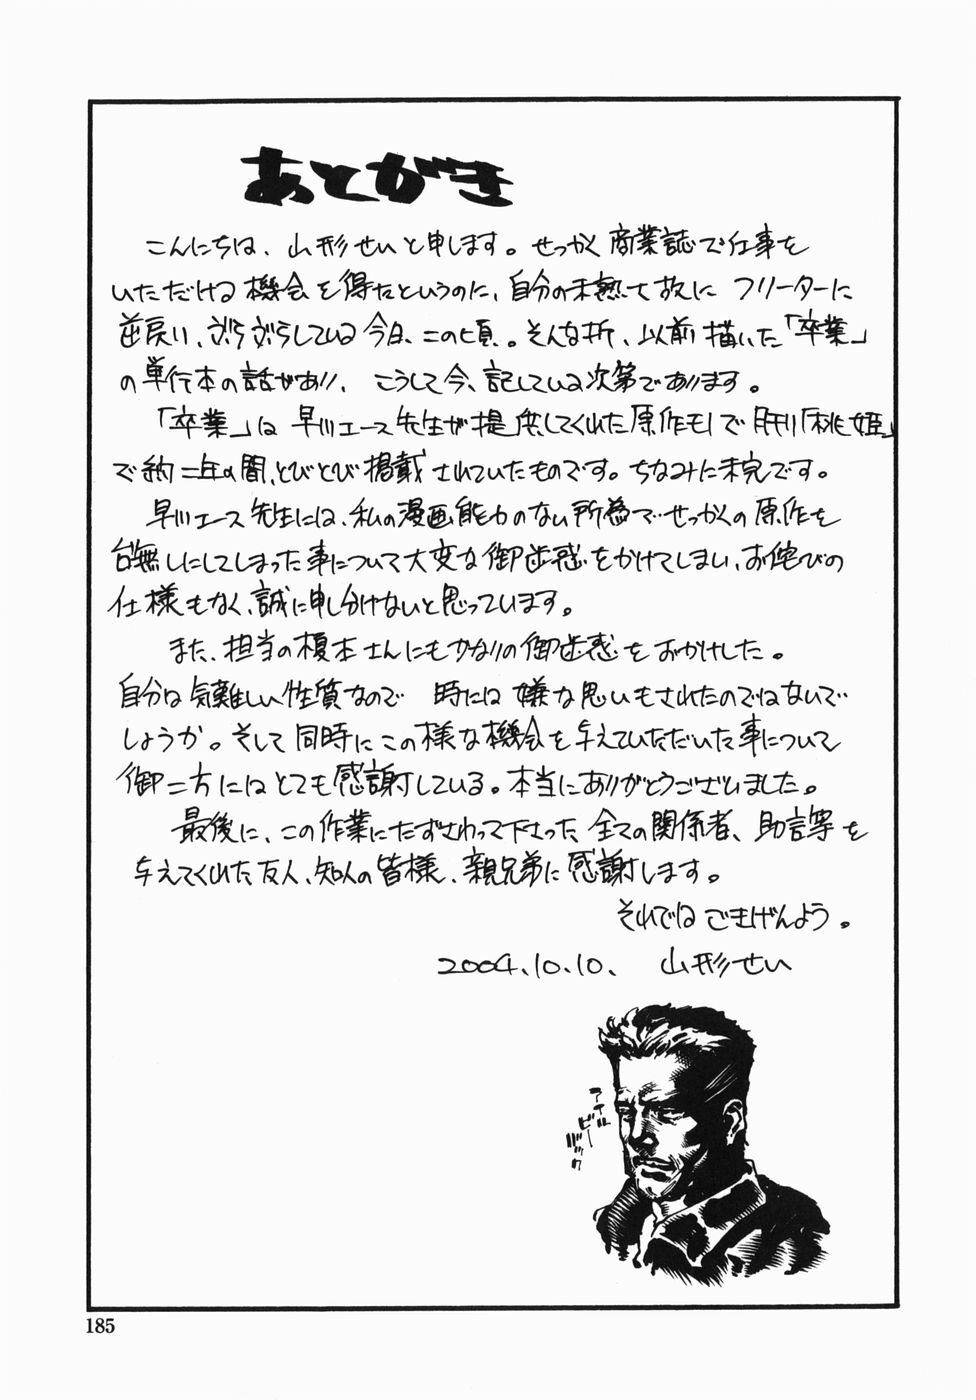 あとがき
こんにちは、山形せいと申します。せっかく商業誌で仕事を
いただける機会を得たというのに、自分の未熟さ故に フリーターに
逆戻り、ぶらぶらしている今日、この頃。そんな折、以前描いた「卒業」
の単行本の話があり、こうして今、記している次第であります。
「卒業」は 早川エース先生が提供してくれた原作モノで 月刊「桃姫」
で約二年の間、とびとび掲載されていたものです。ちなみに未完です。
早川エース先生には、私の漫画能力のない所為で せっかくの原作を
台無しにしてしまった事について大変な御迷惑をかけてしまい、お侘びの
仕様もなく、誠に申し分けないと思っています。
また、担当の榎本さんにもかなりの御迷惑をおかけした。
自分は気難しい性質なので 時には嫌な思いもされたのではないで
しょうか。そして同時にこの様な機会を与えていただいた事について
御二方にはとても感謝している。本当にありがとうございました。
最後に、この作業にたずさわって下さった全ての関係者、助言等を
与えてくれた友人、知人の皆様、親兄弟に感謝します。
それでは ごきげんよう。
2004.10.10. 山形せい
アイル
ビー
バック
185